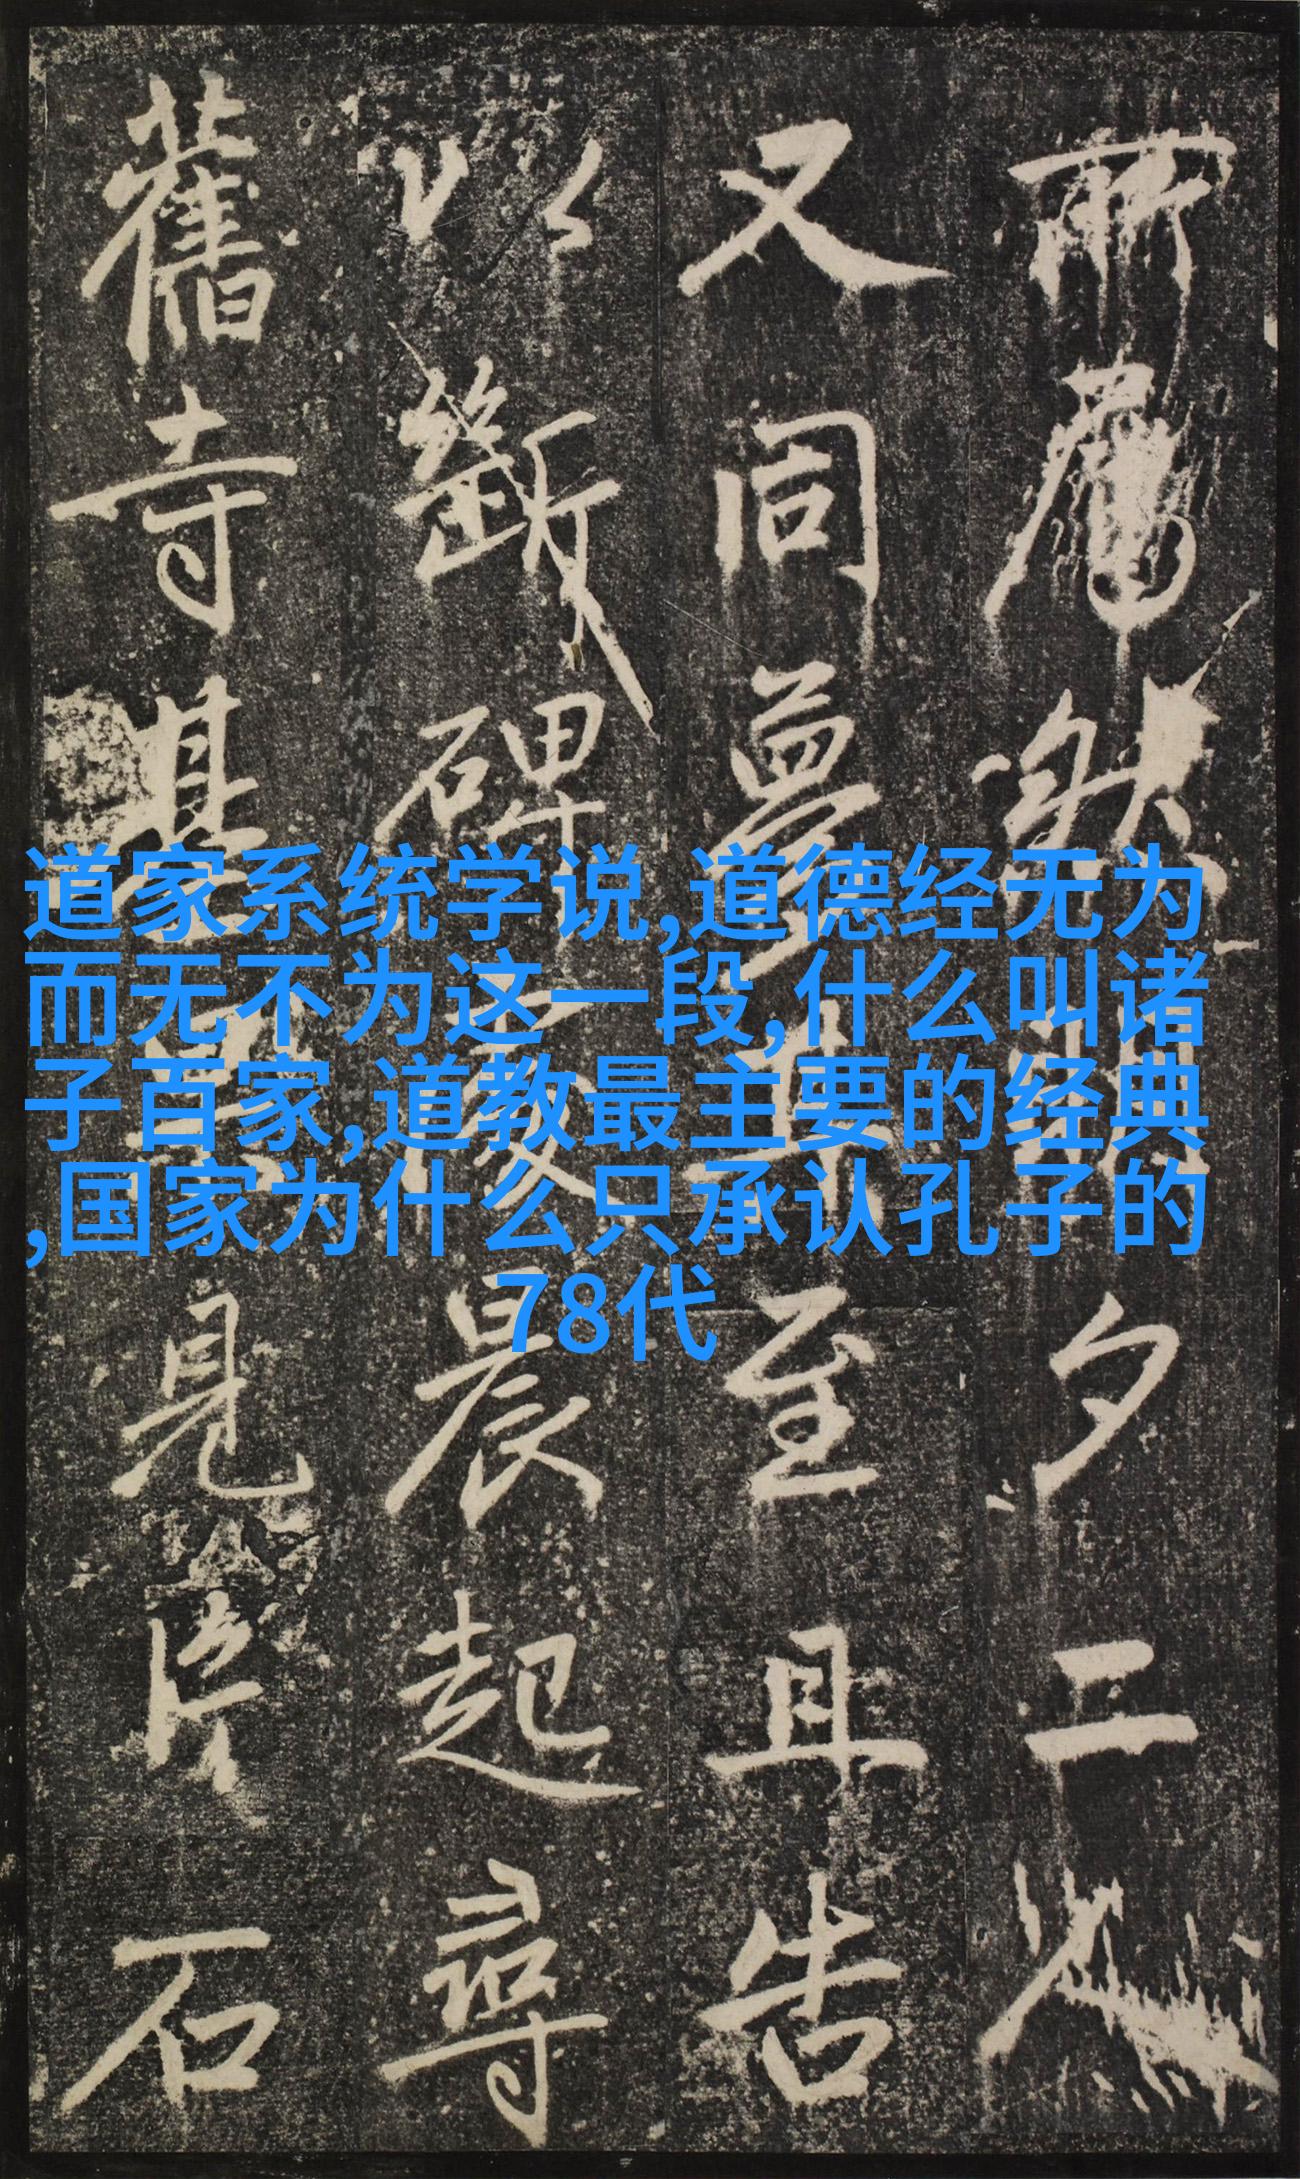 所夕二
又同夢其至且告
以斷碑晨起尋
舊寺基見片石
道家系统学说,道德经无为
而无不为这一段,什么叫诸
子百家,道教最主要的经典
,国家为什么只承认孔子的
78代